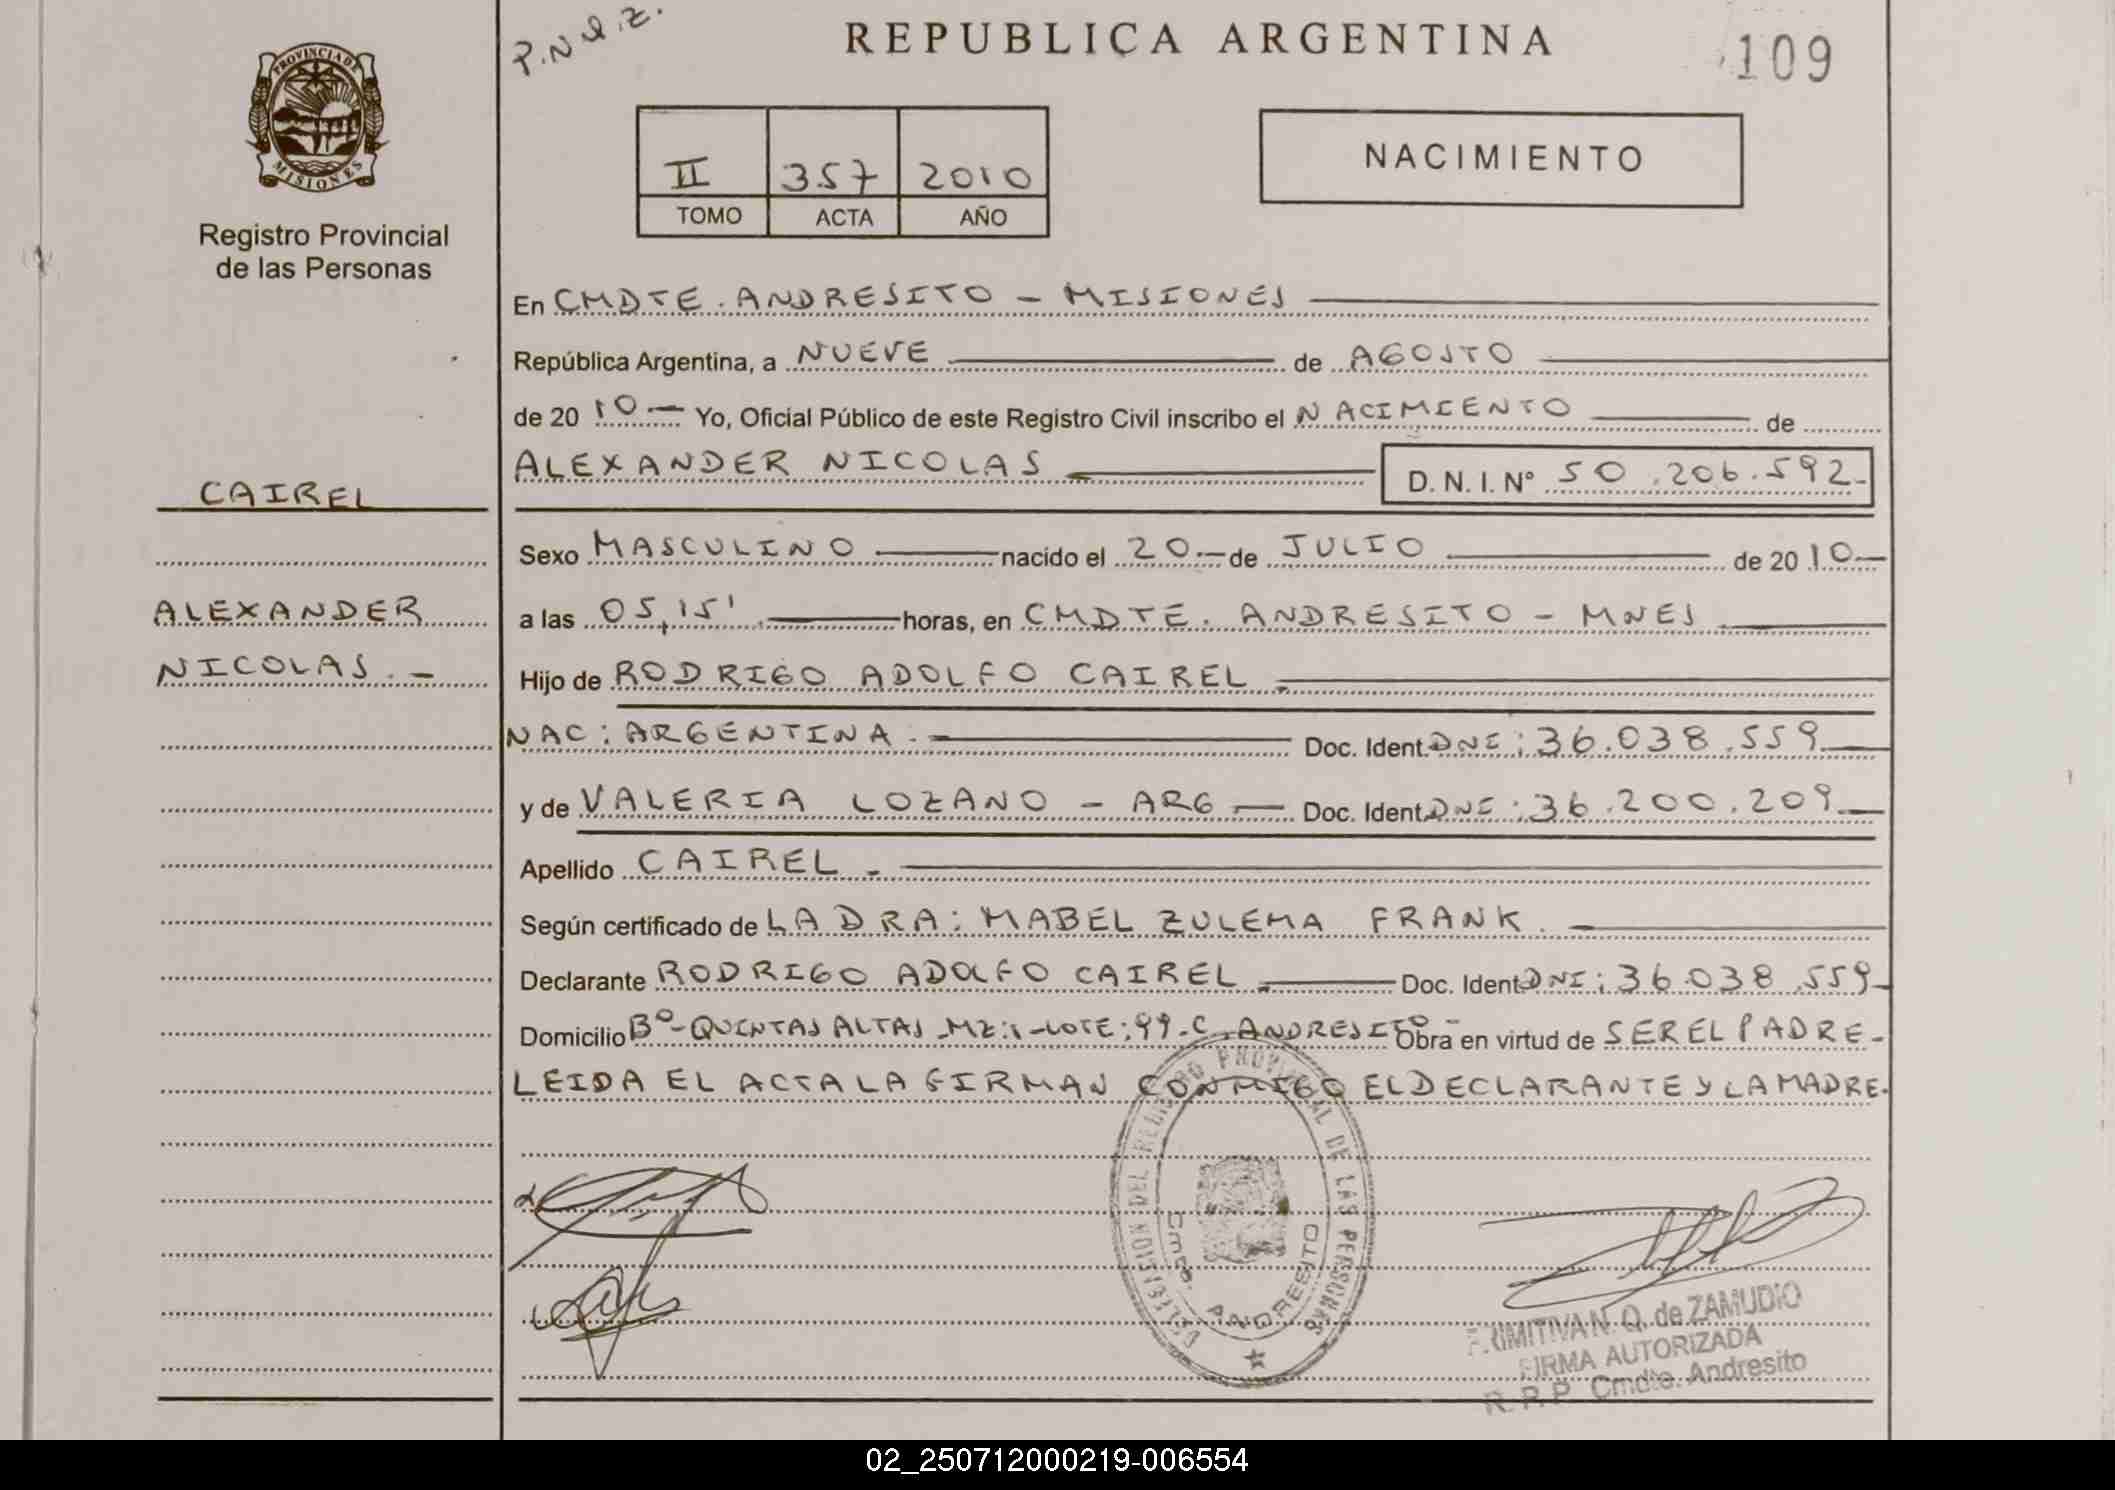 P.N.I.Z.
REPUBLICA ARGENTINA
109
PROVINCIA DE
MISIONES
Registro Provincial
de las Personas
II 357 2010
TOMO ACTA AÑO
NACIMIENTO
En CMDTE. ANDRESITO - MISIONES
República Argentina, a NUEVE de AGOSTO
de 2010 - Yo, Oficial Público de este Registro Civil inscribo el NACIMIENTO de
ALEXANDER NICOLAS D. N. I. Nº 50.206.592-
CAIREL
Sexo MASCULINO nacido el 20 - de JULIO de 2010 -
ALEXANDER
a las 05,15' horas, en CMDTE. ANDRESITO - MNES
NICOLAS. -
Hijo de RODRIGO ADOLFO CAIREL
NAC: ARGENTINA. - Doc. Ident. DNI: 36.038.559
y de VALERIA LOZANO - ARG - Doc. Ident. DNI: 36.200.209
Apellido CAIREL. -
Según certificado de LA DRA: MABEL ZULEMA FRANK. -
Declarante RODRIGO ADOLFO CAIREL Doc. Ident DNI: 36.038.559-
Domicilio Bº- QUINTAS ALTAS MZ:1-LOTE:99-C. ANDRESITO Obra en virtud de SER EL PADRE-
LEIDA EL ACTA LA FIRMAN CONMIGO EL DECLARANTE Y LA MADRE.
DEL REGISTRO PROVINCIAL DE LAS PERSONAS
Cmte. ANDRESITO
PRIMITIVA N. Q. de ZAMUDIO
FIRMA AUTORIZADA
R. P. P. Cmdte. Andresito
02_250712000219-006554